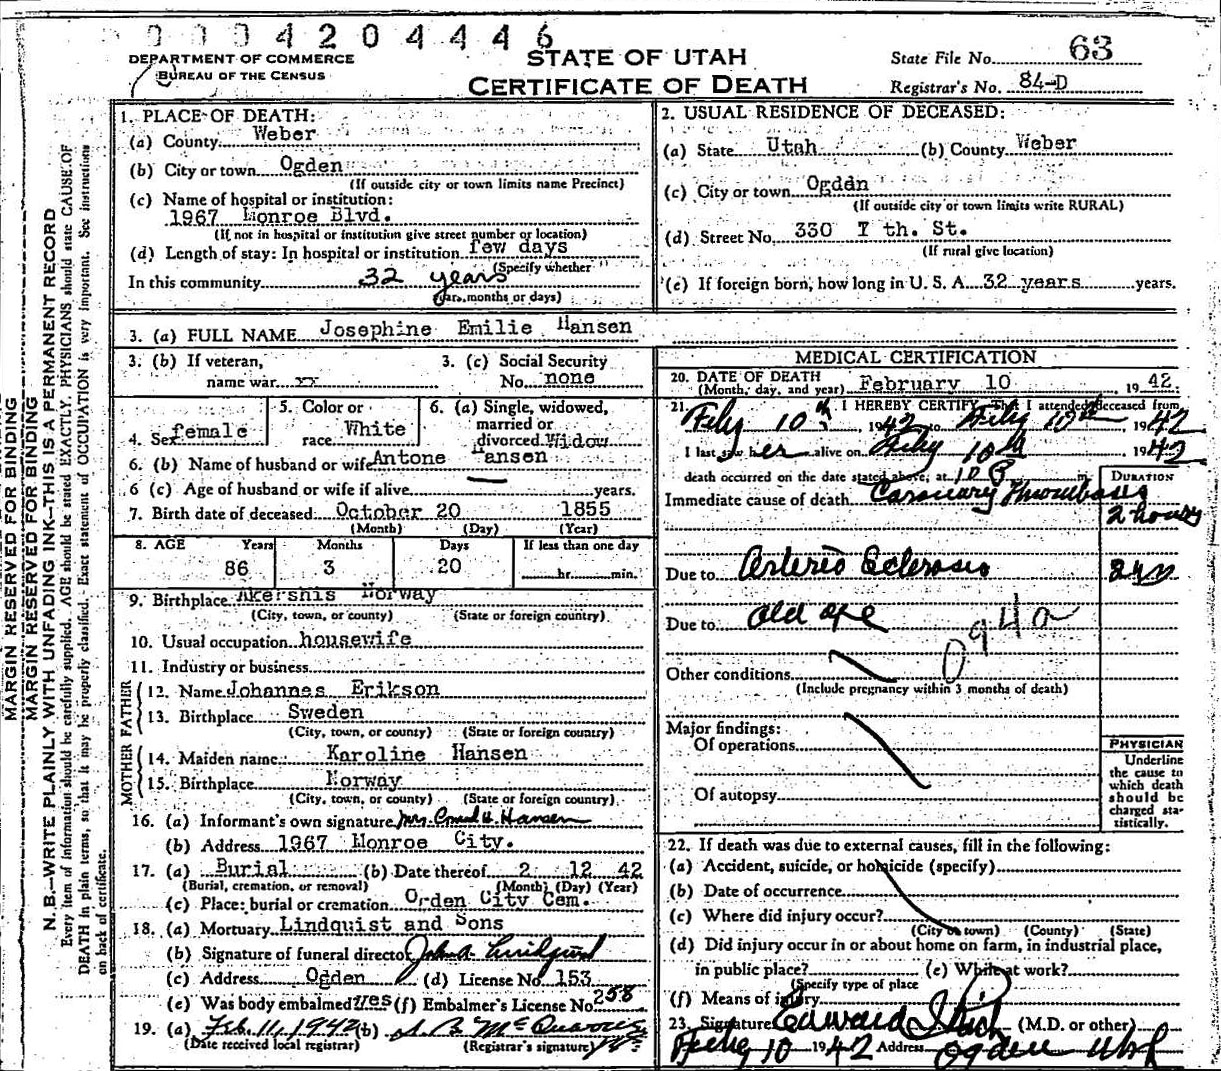 0004204446
DEPARTMENT OF COMMERCE
BUREAU OF THE CENSUS
STATE OF UTAH
CERTIFICATE OF DEATH
State File No. 63
Registrar's No. 84-D
MARGIN RESERVED FOR BINDING
MARGIN RESERVED FOR BINDING
N. B.—WRITE PLAINLY WITH UNFADING INK—THIS IS A PERMANENT RECORD
Every item of information should be carefully supplied. AGE should be stated EXACTLY. PHYSICIANS should state CAUSE OF
DEATH in plain terms, so that it may be properly classified. Exact statement of OCCUPATION is very important. See instructions
on back of certificate.
1. PLACE OF DEATH:
(a) County Weber
(b) City or town Ogden
(If outside city or town limits name Precinct)
(c) Name of hospital or institution:
1967 Monroe Blvd.
(If not in hospital or institution give street number or location)
(d) Length of stay: In hospital or institution few days
(Specify whether
In this community 32 years
years, months or days)
2. USUAL RESIDENCE OF DECEASED:
(a) State Utah (b) County Weber
(c) City or town Ogden
(If outside city or town limits write RURAL)
(d) Street No. 330 7 th. St.
(If rural give location)
(e) If foreign born, how long in U. S. A. 32 years years.
3. (a) FULL NAME Josephine Emilie Hansen
3. (b) If veteran,
name war xx
3. (c) Social Security
No. none
4. Sex female
5. Color or
race White
6. (a) Single, widowed,
married or
divorced Widow
6. (b) Name of husband or wife Antone Hansen
6 (c) Age of husband or wife if alive — years.
7. Birth date of deceased October 20 1855
(Month) (Day) (Year)
8. AGE Years Months Days If less than one day
86 3 20 hr. min.
9. Birthplace Akershis Norway
(City, town, or county) (State or foreign country)
10. Usual occupation housewife
11. Industry or business
FATHER
12. Name Johannes Erikson
13. Birthplace Sweden
(City, town, or county) (State or foreign country)
MOTHER
14. Maiden name Karoline Hansen
15. Birthplace Norway
(City, town, or county) (State or foreign country)
16. (a) Informant's own signature Mrs. H. Hansen
(b) Address 1967 Monroe City.
17. (a) Burial (b) Date thereof 2 12 42
(Burial, cremation, or removal) (Month) (Day) (Year)
(c) Place: burial or cremation Ogden City Cem.
18. (a) Mortuary Lindquist and Sons
(b) Signature of funeral director John A. Lindquist
(c) Address Ogden (d) License No. 153
(e) Was body embalmed yes (f) Embalmer's License No. 258
19. (a) Feb. 11, 1942 (b)
(Date received local registrar) (Registrar's signature)
MEDICAL CERTIFICATION
20. DATE OF DEATH
(Month, day, and year) February 10 1942
21. I HEREBY CERTIFY, That I attended deceased from
Feby 10th, 1942 to Feby 10th 1942
I last saw her alive on Feby 10th 1942
death occurred on the date stated above, at 10 P m
Immediate cause of death Coronary Thrombosis
DURATION
2 hours
Due to Arterio Sclerosis
Due to Old age
094a
Other conditions
(Include pregnancy within 3 months of death)
Major findings:
Of operations
Of autopsy
PHYSICIAN
Underline
the cause to
which death
should be
charged sta-
tistically.
22. If death was due to external causes, fill in the following:
(a) Accident, suicide, or homicide (specify)
(b) Date of occurrence
(c) Where did injury occur?
(City or town) (County) (State)
(d) Did injury occur in or about home on farm, in industrial place,
in public place? (e) While at work?
(Specify type of place
(f) Means of injury
23. Signature Edward I Rich (M.D. or other)
Feby 10 1942 Address Ogden Utah